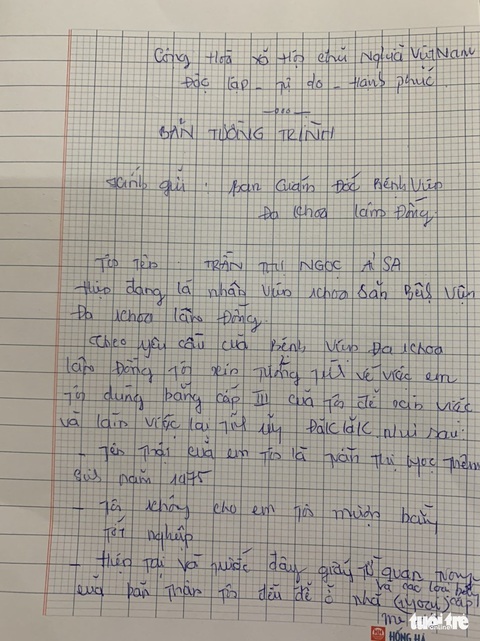 Cộng Hoà xã Hội chủ Nghĩa Việt Nam
Độc lập - Tự do - Hạnh phúc
BẢN TƯỜNG TRÌNH
Kính gửi : Ban Giám Đốc Bệnh Viện
Đa khoa Lâm Đồng.
Tôi tên : TRẦN THỊ NGỌC Á SA
Hiện đang là nhân viên khoa Sản Bệnh Viện
Đa khoa Lâm Đồng.
Theo yêu cầu của Bệnh Viện Đa khoa
Lâm Đồng Tôi xin tường trình về việc em
Tôi dùng bằng cấp III của Tôi để xin việc
và làm việc lại Tỉnh ủy Đăk Lăk như sau:
- Tên Thật của em Tôi là Trần Thị Ngọc Thêm
Sinh năm 1975
- Tôi không cho em Tôi mượn bằng
Tốt nghiệp
- Hiện tại và trước đây giấy Tờ quan trọng
và các loại bằng
của bản Thân Tôi đều để ở nhà
cấp
tuổi trẻ
HỒNG HÀ